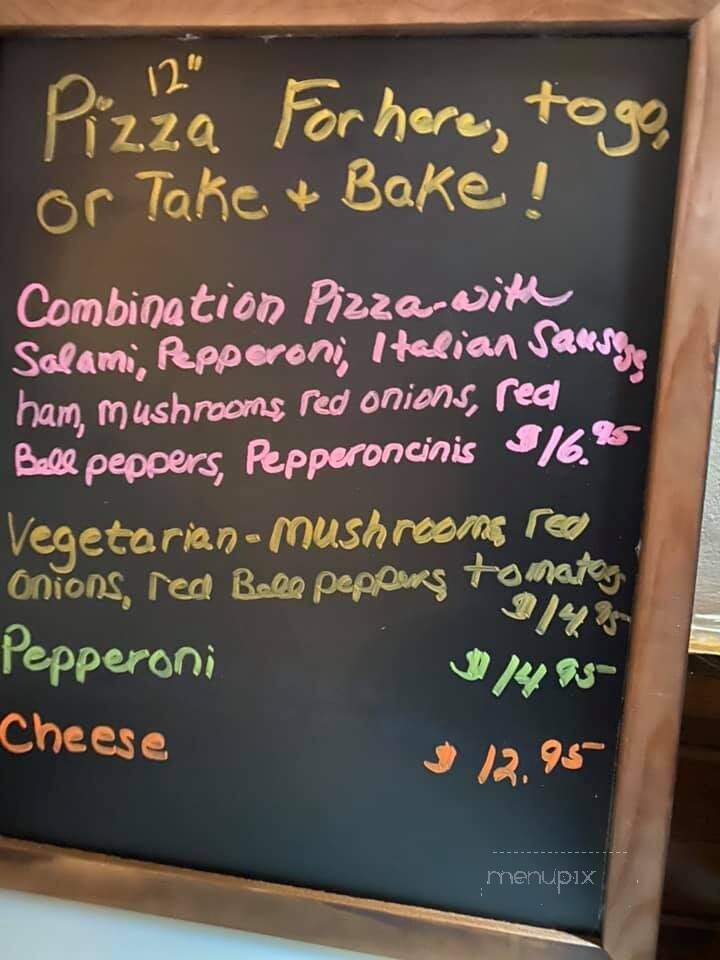 12"
Pizza For here, to go,
or Take + Bake!
Combination Pizza-with
Salami, Pepperoni, Italian Sausage,
ham, mushrooms, red onions, red
Bell peppers, Pepperoncinis $16.95
Vegetarian-mushrooms, red
onions, red Bell peppers, tomatos
$14.95
Pepperoni $14.95
Cheese $12.95
menupix